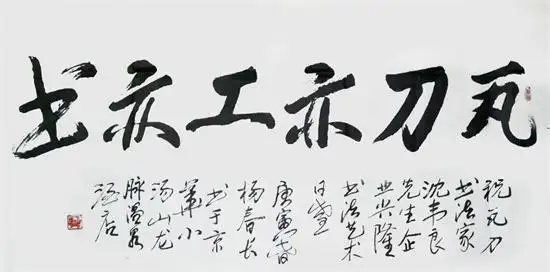 瓦刀亦工亦书
祝瓦刀
书法家
沈韦良
先生企
业兴隆
书法艺术
日盛
庚寅春
杨春长
书于京
華小
汤山龙
脉温泉
酒店